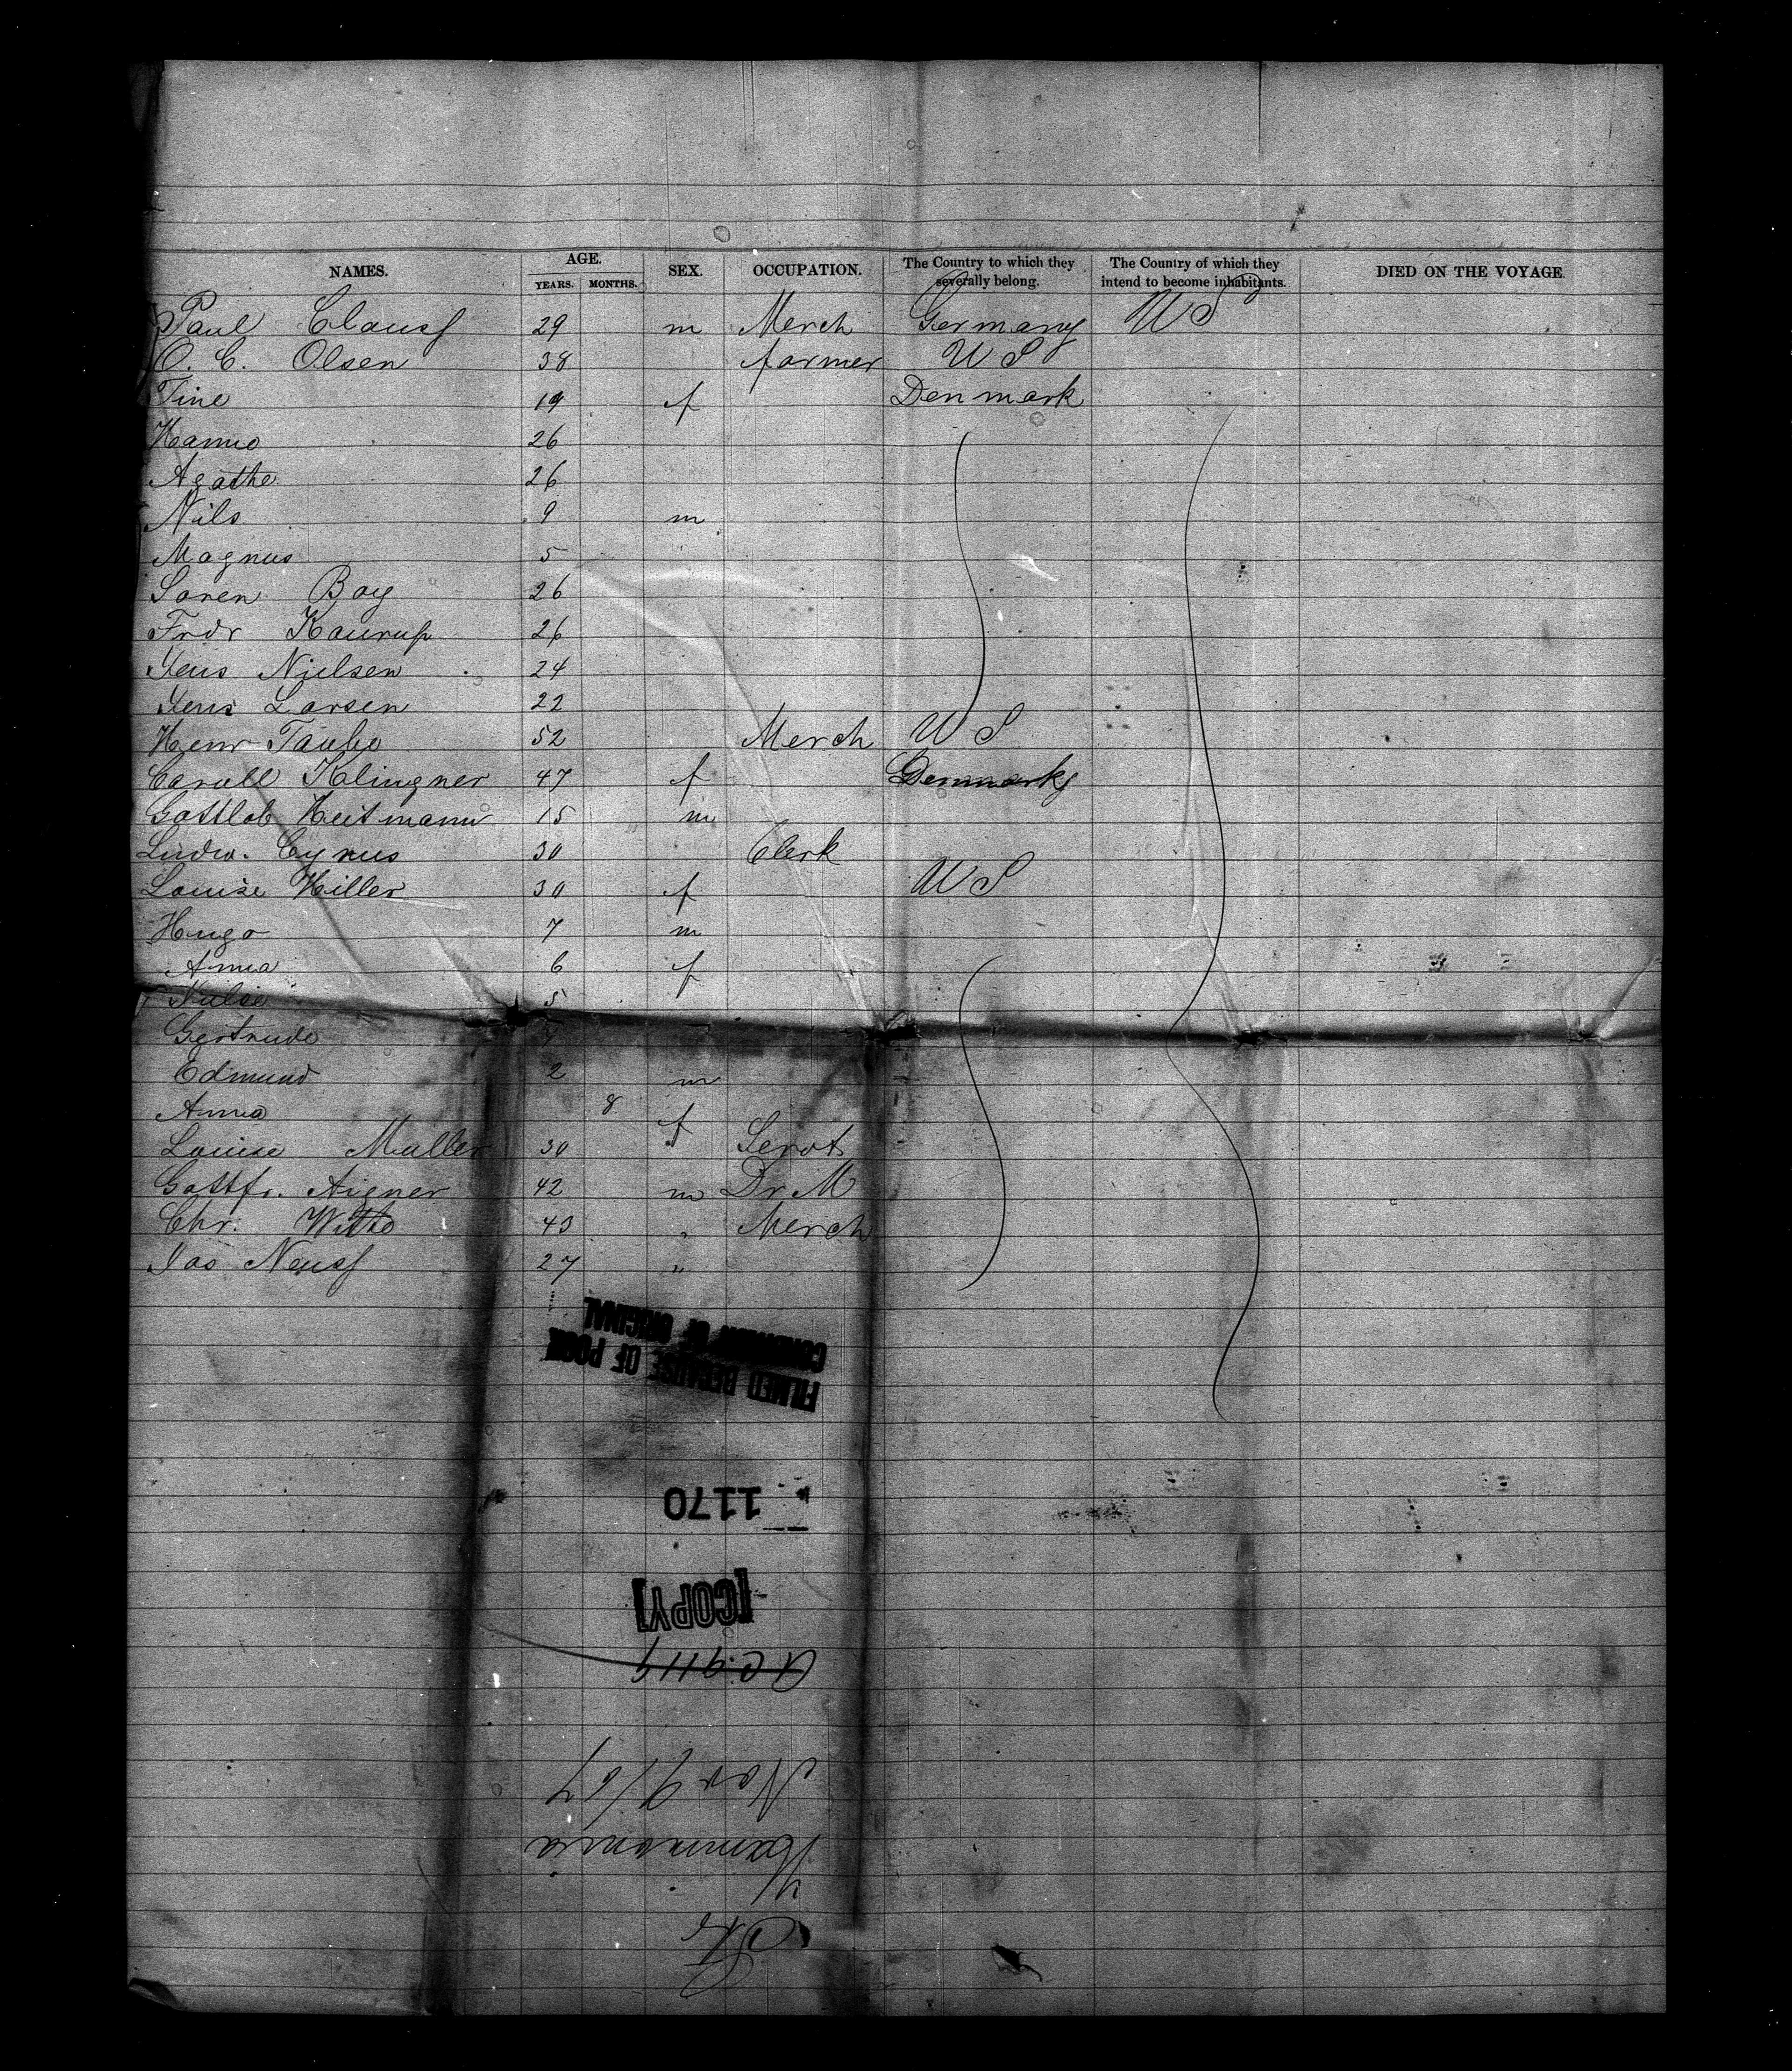 NAMES. AGE. YEARS. MONTHS. SEX. OCCUPATION. The Country to which they severally belong. The Country of which they intend to become inhabitants. DIED ON THE VOYAGE.
Paul Clauss 29 m Merch Germany U S
O. C. Olsen 38 farmer U S
Tine 19 f Denmark
Hanne 26
Agathe 26
Nils 9 m
Magnus 5
Soren Boy 26
Frdr Kaurup 26
Jens Nielsen 24
Jens Larsen 22
Henr Taube 52 Merch U S
Caroll Klingner 47 f
Gottlob Heitmann 15 m
Ludw. Cyrus 30 Clerk
Louise Hiller 30 f U S
Hugo 7 m
Anna 6 f
5
Gertrude
Edmund 2 m
Anna 8 f
Louise Muller 30 Servt
Gottfr. Aigner 42 m Dr M
Chr. Witte 43 " Merch
Jas Neuss 27 "
FILMED BECAUSE OF POOR
CONDITION OF ORIGINAL
1170
[COPY]
Nov 9/67
Hammonia
Str